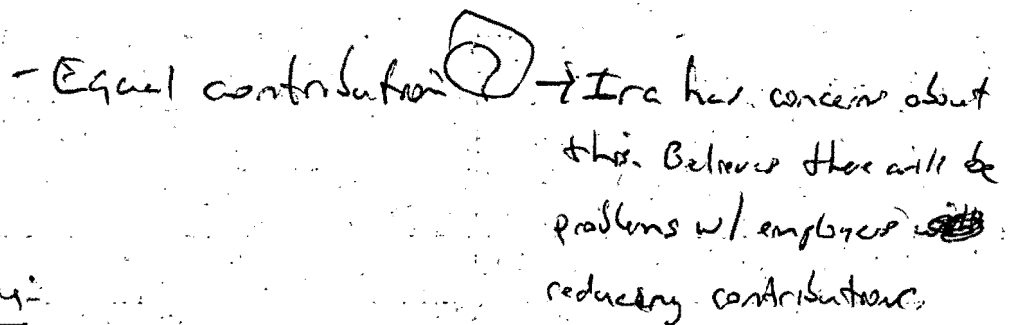 - Equal contribution ? → Ira has concerns about
this. Believes there will be
problems w/ employers
reducing contributions.